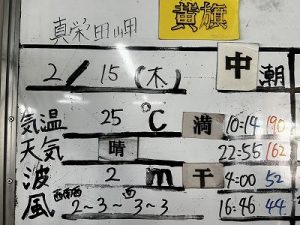 真栄田岬 黄旗
2/15(木) 中潮
気温 25℃ 満 10:14 190
天気 晴 22:55 162
波 2m 干 4:00 52
風 西南西 2~3~西3~3 16:46 44